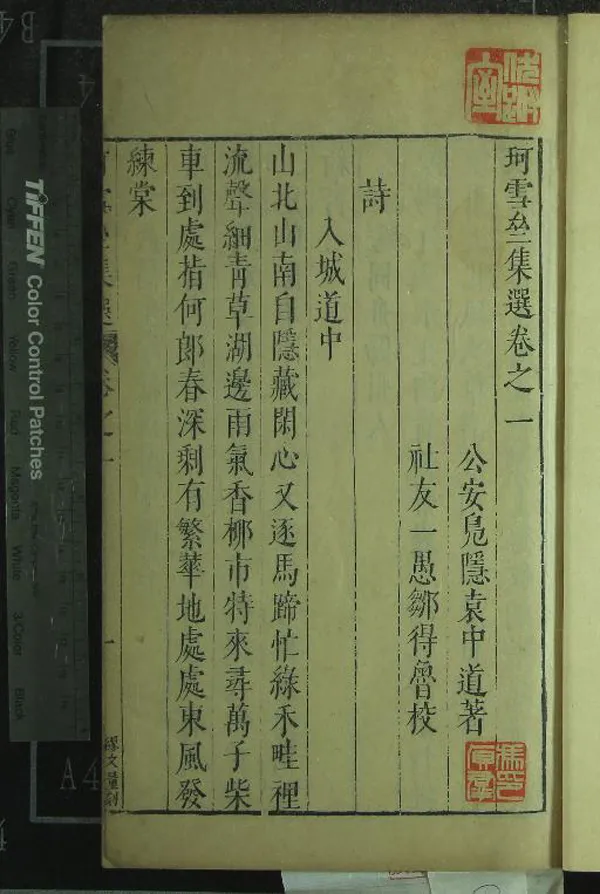 珂雪𡊮集選卷之一
公安鳧隱袁中道著
社友一愚鄒得魯校
詩
入城道中
山北山南自隱藏閑心又逐馬蹄忙綠禾畦裡
流聲細青草湖邊雨氣香柳市特來尋萬子柴
車到處指何郎春深剩有繁華地處處東風發
練棠
卷之一
一
TIFFEN Color Control Patches
Blue
Cyan
Green
Yellow
Red
Magenta
White
3/Color
Black